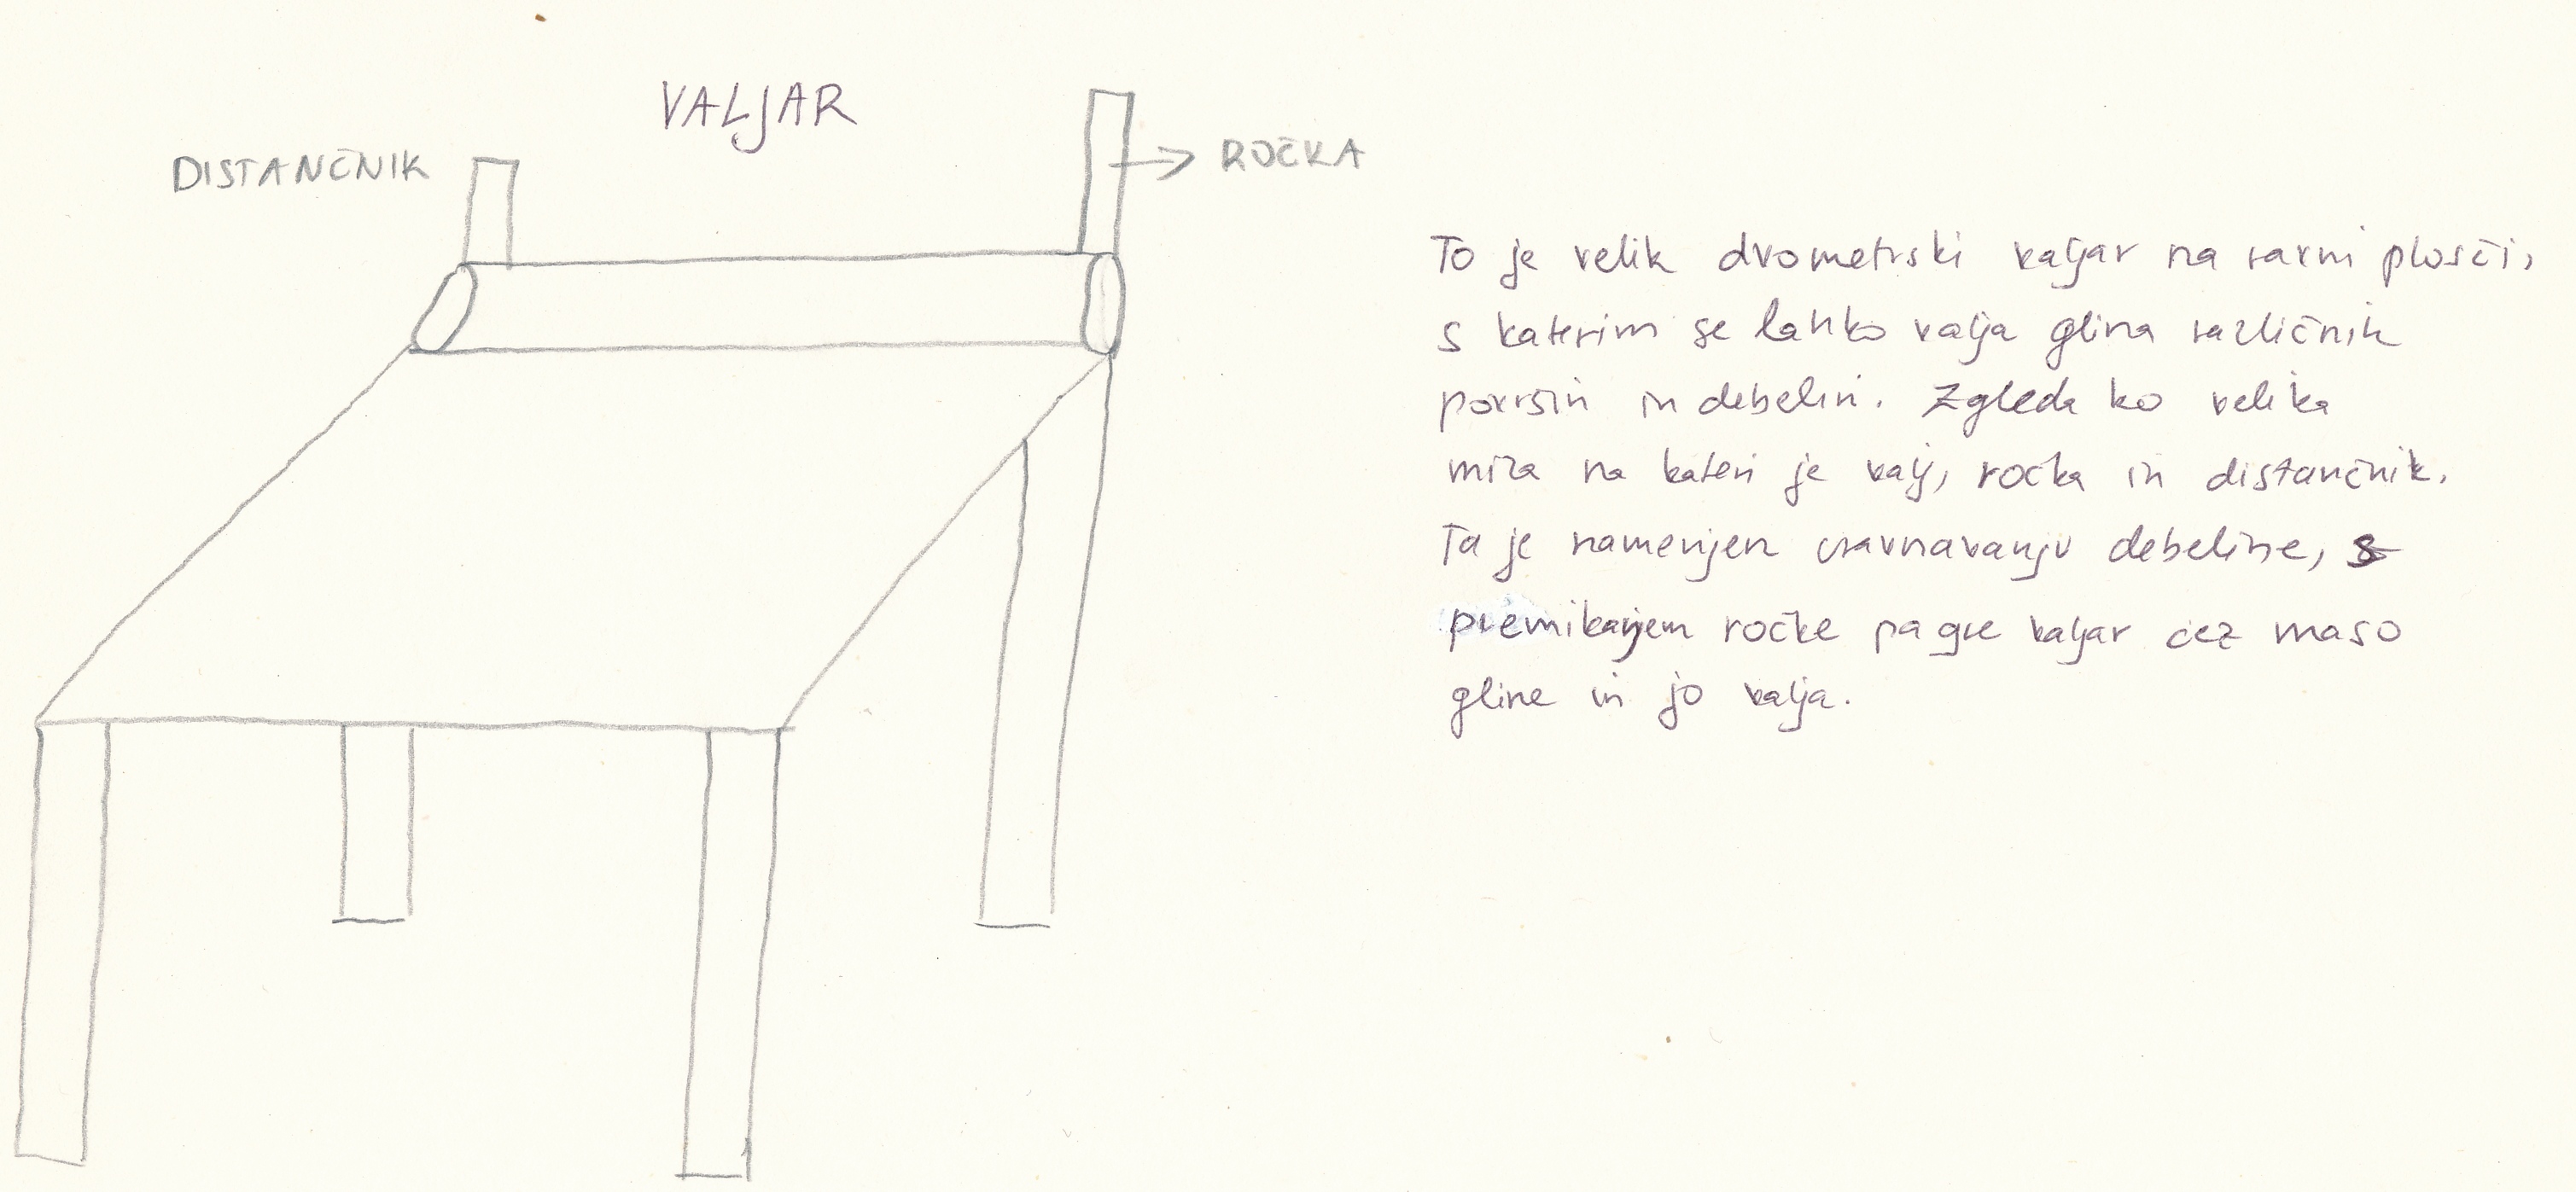 VALJAR
DISTANČNIK
ROČKA
To je velik dvometrski valjar na ravni plošči,
s katerim se lahko valja glina različnih
površin in debelin. Zgleda ko velika
miza na kateri je valj, ročka in distančnik.
Ta je namenjen uravnavanju debeline, s
premikanjem ročke pa gre valjar čez maso
gline in jo valja.